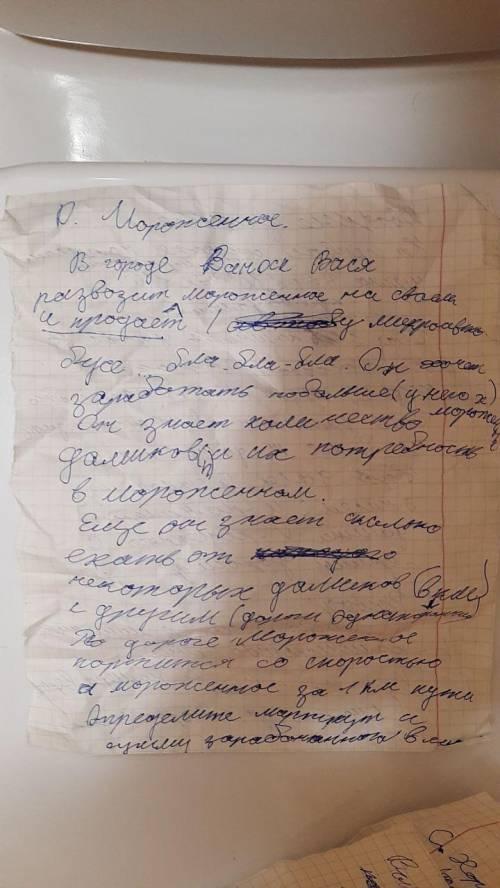 D. Мороженное.
В городе Ваноск Вася
развозит мороженное на своем
и продаёт / микроавто
бусе... бла-бла-бла. Он хочет
заработать побольше (у него x)
Он знает количество мороже
домиков (n) и их потребность
в мороженном.
Еще он знает сколько
ехать от
некоторых домиков (в км)
к другим (дороги
По дороге мороженое
портится со скоростью
d мороженное за 1 км пути
Определите маршрут и
сумму заработанного
C. Хор